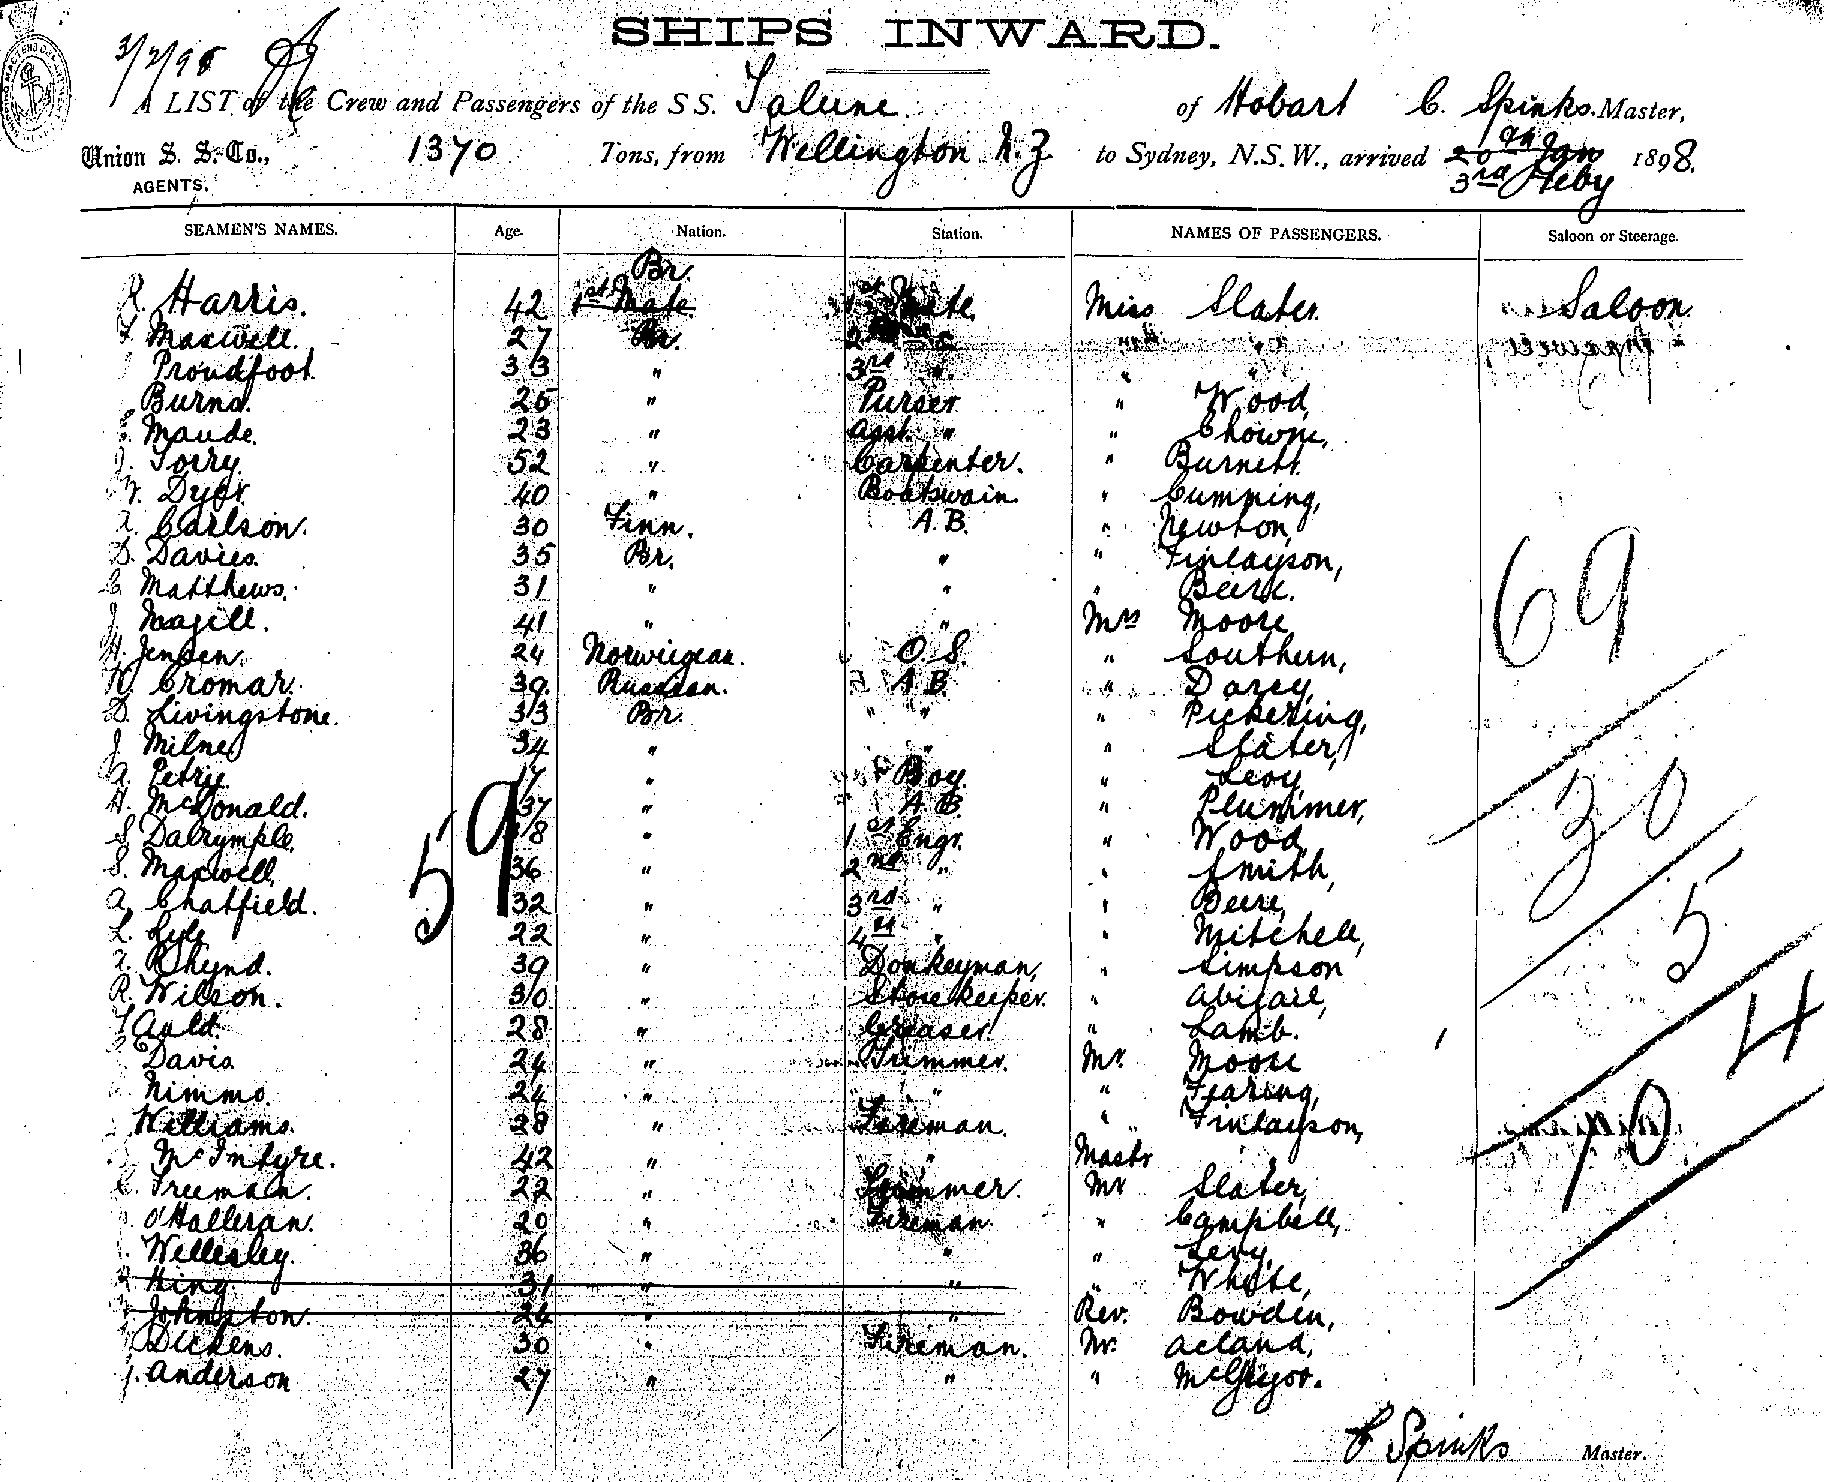 SHIPS INWARD.
3/2/98
A LIST of the Crew and Passengers of the S S. Talune of Hobart C. Spinks. Master,
Union S. S. Co., AGENTS. 1370 Tons, from Wellington N.Z. to Sydney, N.S.W., arrived 3rd Feby 1898.
SEAMEN'S NAMES. Age. Nation. Station. NAMES OF PASSENGERS. Saloon or Steerage.
Br.
Harris. 42 1st Mate 1st Mate. Miss Slater. Saloon.
Maxwell. 27 Br. 2nd " "
Proudfoot. 33 " 3rd " " "
Burns. 25 " Purser " Wood,
Maude. 23 " Asst. " " Chowne,
J. Torry. 52 " Carpenter. " Burnett.
Dyer. 40 " Boatswain. " Cumming,
Carlson. 30 Finn. A.B. " Newton,
D. Davies. 35 Br. " " Finlayson,
C. Matthews. 31 " " " Beere.
J. Magill. 41 " " Mrs Moore
H. Jensen. 24 Norwiegian. O.S. " Southern,
Cromar. 39. Russian. A.B. " Darcy,
D. Livingstone. 33 Br. " " Pickering,
J. Milne 34 " " " Slater,
A. Petrie 17 " Boy. " Levy,
H. McDonald. 37 " A.B. " Plummer,
S. Dalrymple. 38 " 1st Engr. " Wood,
S. Maxwell. 36 " 2nd " " Smith,
A. Chatfield. 32 " 3rd " " Beere,
L. Lyle 22 " 4th " " Mitchell,
Rhynd. 39 " Donkeyman, " Simpson
R. Wilson. 30 " Storekeeper. " Abigail,
Auld. 28 " Greaser. " Lamb.
Davis. 24 " Trimmer. Mr. Moore
Nimmo. 24 " " " Fearing,
Williams. 28 " Fireman. " Finlayson,
McIntyre. 42 " " Mastr "
C. Freeman. 22 " Trimmer. Mr Slater,
O'Halleran. 20 " Fireman. " Campbell,
Wellesley. 36 " " " Levy,
King 31 " " " White,
Johnston. 24 " " Rev. Bowden,
Dickens. 30 " Fireman. Mr. Acland,
J. Anderson 27 " " " McGregor.
59
69
30
5
4
10
Spinks Master.